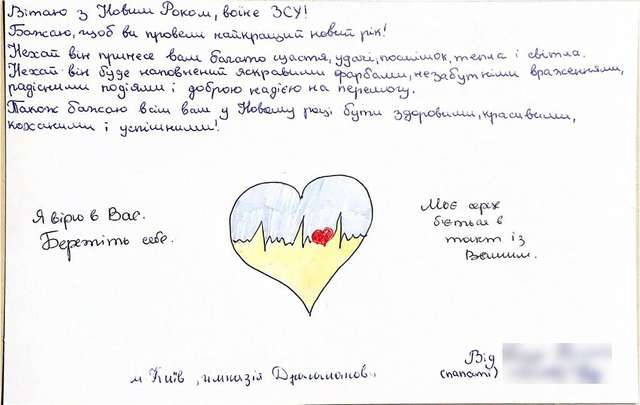 Вітаю з Новим Роком, воїне ЗСУ!
Бажаю, щоб ви провели найкращий новий рік!
Нехай він принесе вам багато щастя, удачі, посмішок, тепла і світла.
Нехай він буде наповнений яскравими фарбами, незабутніми враженнями,
радісними подіями і доброю надією на перемогу.
Також бажаю всім вам у Новому році бути здоровими, красивими,
коханими і успішними!
Я вірю в Вас.
Бережіть себе.
Моє серце
бється в
такт із
Вашим.
Від
(папаті)
м Київ, гімназія Драгоманов.